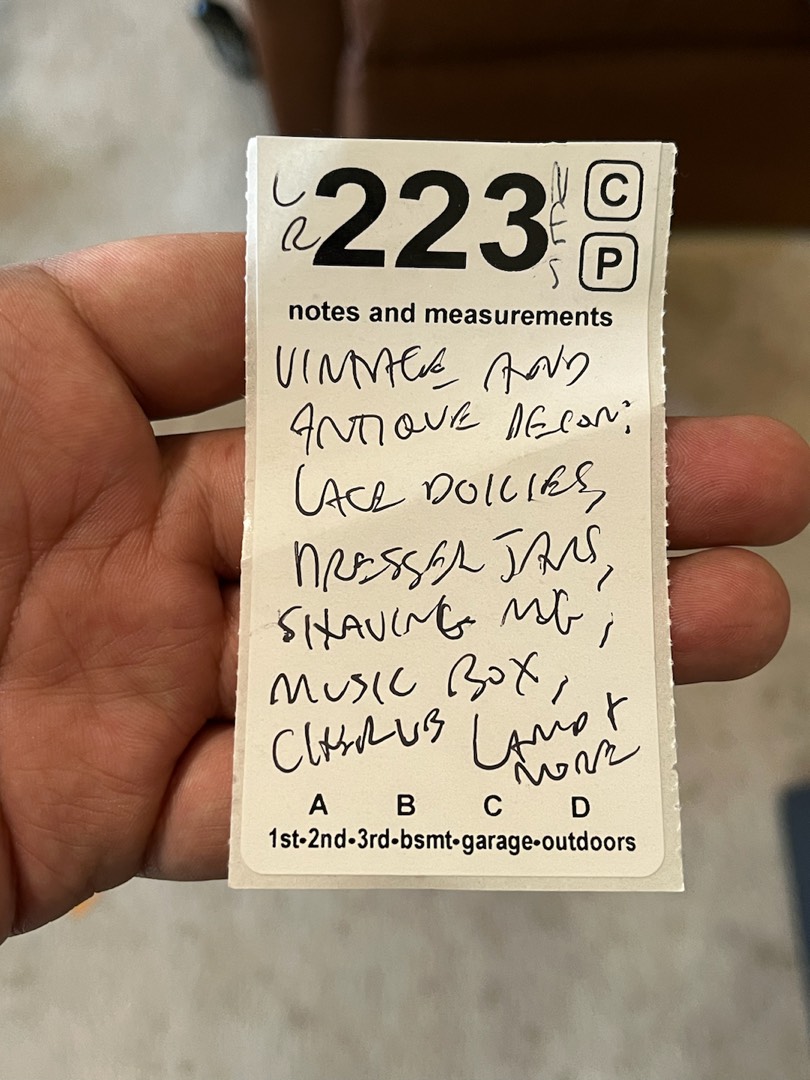 LR 223 C
P
notes and measurements
VINTAGE AND
ANTIQUE DECOR:
LACE DOILIES,
DRESSER JARS,
SHAVING MUG,
MUSIC BOX,
CHERUB LAMP +
MORE
A B C D
1st-2nd-3rd-bsmt-garage-outdoors